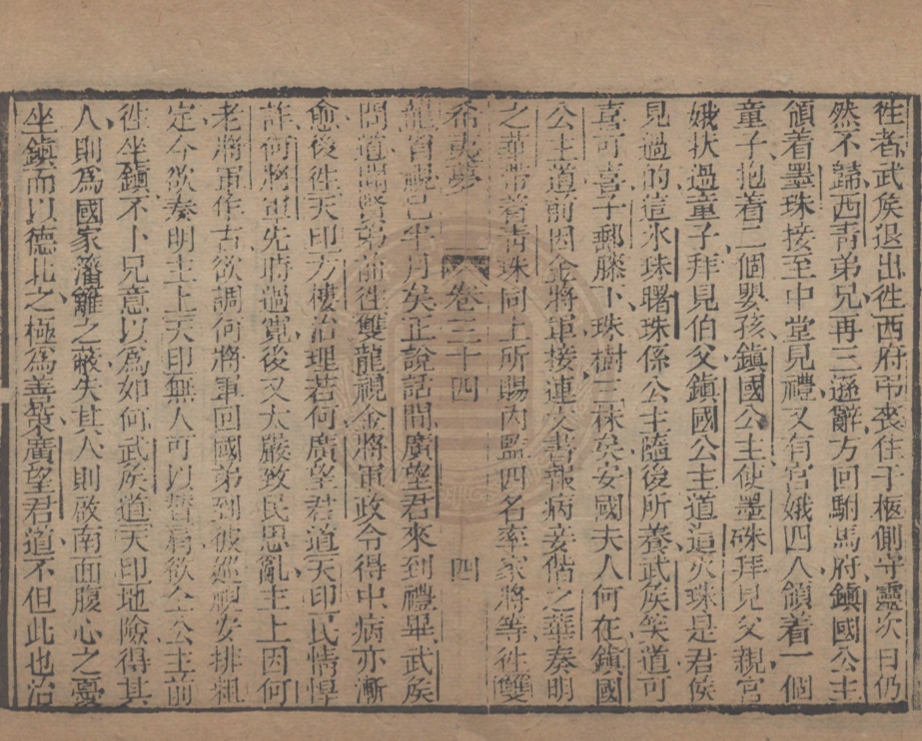 徃者武矦退出徃西府弔喪住于柩側守靈次日仍
然不歸西青弟兄再三遜辭方回駙馬府鎮國公主
領着墨珠接至中堂見禮又有宮娥四人領着一個
童子抱着二個嬰孩鎮國公主使墨珠拜見父親宮
娥扶過童子拜見伯父鎮國公主道這火珠是君侯
見過的這氷珠曙珠係公主隨後所養武矦笑道可
喜可喜子郵滕下珠樹三株矣安國夫人何在鎮國
公主道前因金將軍接連文書報病妾偕之華奏明
之華帶着青珠同上所賜內監四名率家將等徃雙
希夷夢 卷三十四 四
龍省視已半月矣正說話間廣望君來到禮畢武矦
問道聞賢弟前徃雙龍視金將軍政令得中病亦漸
愈後徃天印方樓治理若何廣望君道天印民情悍
詐何將軍先時過寬後又太嚴致民思亂主上因何
老將軍作古欲調何將軍回國弟到彼巡視安排粗
定今欲奏明主上天印無人可以替肩欲仝公主前
徃坐鎮不卜兄意以爲如何武矦道天印地險得其
人則爲國家籓籬之蔽失其人則啟南面腹心之憂
坐鎮而以德化之極爲善策廣望君道不但此也治